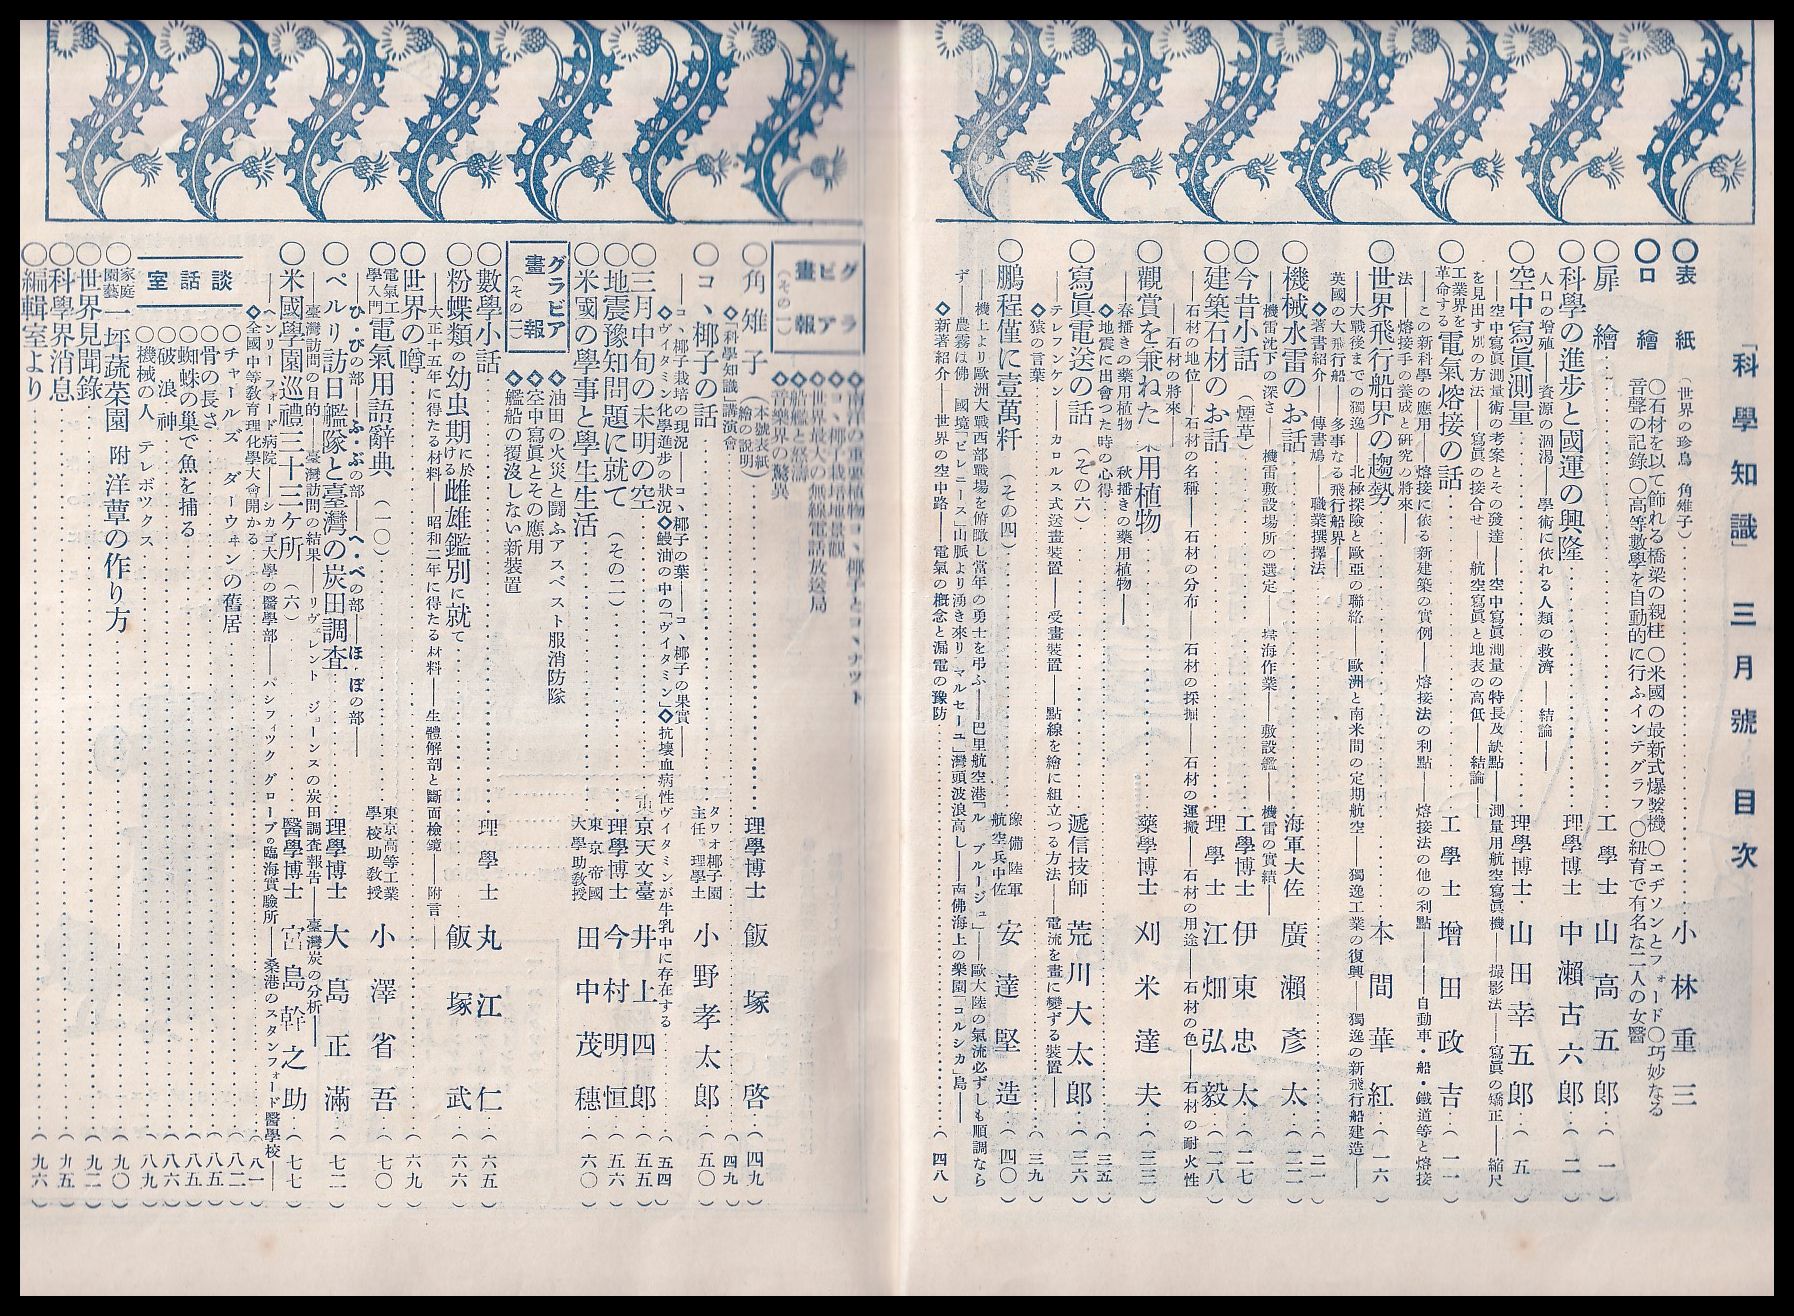 「科學知識」 三月號 目次
〇表紙（世界の珍鳥 角雉子）……小林重三
〇口繪 〇石材を以て飾れる橋梁の親柱〇米國の最新式爆擊機〇エヂソンとフォード〇巧妙なる
音聲の記錄〇高等數學を自動的に行ふインテグラフ〇紐育で有名な二人の女醫
〇扉繪……工學士 山高五郎……（一）
〇科學の進步と國運の興隆……理學博士 中瀨古六郎……（二）
人口の增殖――資源の涸渴――學術に依れる人類の救濟――結論――
〇空中寫眞測量……理學博士 山田幸五郎……（五）
――空中寫眞測量術の考案とその發達――空中寫眞測量の特長及缺點――測量用航空寫眞機――撮影法――寫眞の矯正――縮尺
を見出す別の方法――寫眞の接合せ――航空寫眞と地表の高低――結論――
〇工業界を革命する電氣熔接の話……工學士 增田政吉……（一一）
――この新科學の應用――熔接に依る新建築の實例――熔接法の利點――熔接法の他の利點――自動車・船・鐵道等と熔接
法――熔接手の養成と研究の將來――
〇世界飛行船界の趨勢……本間華紅……（一六）
――大戰後までの獨逸――北極探險と歐亞の聯絡――歐洲と南米間の定期航空――獨逸工業の復興――獨逸の新飛行船建造――
英國の大飛行船――多事なる飛行船界――
◇著書紹介――傳書鳩――職業撰擇法……（二一）
〇機械水雷のお話……海軍大佐 廣瀨彥太……（二二）
――機雷沈下の深さ――機雷敷設場所の選定――掃海作業――敷設艦――機雷の實績――
〇今昔小話（煙草）……工學博士 伊東忠太……（二七）
〇建築石材のお話……理學士 江畑弘毅……（二八）
――石材の地位――石材の名稱――石材の分布――石材の採掘――石材の運搬――石材の用途――石材の色――石材の耐火性
――石材の將來――
〇觀賞を兼ねた藥用植物……藥學博士 刈米達夫……（三三）
春播きの藥用植物――秋播きの藥用植物――
◇地震に出會つた時の心得……（三五）
〇寫眞電送の話（その六）……遞信技師 荒川大太郎……（三六）
――テレフンケン――カロルス式送畫裝置――受畫裝置――點線を繪に組立つる方法――電流を畫に變ずる裝置――
◇猿の言葉……（三九）
〇鵬程僅に壹萬粁（その四）……豫備陸軍航空兵中佐 安達堅造……（四〇）
――機上より歐洲大戰西部戰場を俯瞰し當年の勇士を弔ふ――巴里航空港「ル ブルージュ」――歐大陸の氣流必ずしも順調なら
ず――農霧は佛 國境「ピレニース」山脈より湧き來り マルセーユ」灣頭波浪高し――南佛海上の樂園「コルシカ」島――
◇新著紹介――世界の空中路――電氣の槪念と漏電の豫防……（四八）
グラビア畫報（その一）
◇南洋の重要植物コヽ椰子とコヽナット
◇コヽ椰子栽培地景觀
◇世界最大の無線電話放送局
◇船艦と怒濤
◇音樂界の驚異
〇角雉子（本號表紙繪の說明）……理學博士 飯塚啓……（四九）
◇「科學知識」講演會……（四九）
〇コヽ椰子の話……タワオ椰子園主任・理學士 小野孝太郎……（五〇）
――コヽ椰子栽培の現況――コヽ椰子の葉――コヽ椰子の果實――
◇ヴイタミン化學進步の狀況◇鰻油の中の「ヴイタミン」◇抗壞血病性ヴイタミンが牛乳中に存在する……（五四）
〇三月中旬の未明の空……東京天文臺 井上四郎……（五五）
〇地震豫知問題に就て（その二）……理學博士 今村明恒……（五六）
〇米國の學事と學生生活……東京帝國大學助敎授 田中茂穗……（六〇）
グラビア畫報（その二）
◇油田の火災と鬪ふアスベスト服消防隊
◇空中寫眞とその應用
◇艦船の覆沒しない新裝置
〇數學小話……理學士 丸江仁……（六五）
〇粉蝶類の幼虫期に於ける雌雄鑑別に就て……飯塚武……（六六）
――大正十五年に得たる材料――昭和二年に得たる材料――生體解剖と斷面檢鏡――附言――
〇世界の噂……（六九）
〇電氣工學入門 電氣用語辭典（一〇）……東京高等工業學校助敎授 小澤省吾……（七〇）
ひ・びの部――ふ・ぶの部――へ・べの部――ほ・ぼの部――
〇ペルリ訪日艦隊と臺灣の炭田調査……理學博士 大島正滿……（七二）
――臺灣訪問の目的――臺灣訪問の結果――リヴェレント ジョーンスの炭田調査報告――臺灣炭の分析――
〇米國學園巡禮三十三ヶ所（六）……醫學博士 宮島幹之助……（七七）
――ヘンリー フォード病院――シカゴ大學の醫學部――パシフィック グローブの臨海實驗所――桑港のスタンフォード醫學校――
◇全國中等敎育理化學大會開かる……（八一）
談話室
〇チャールズ ダーウヰンの舊居……（八二）
〇骨の長さ……（八五）
〇蜘蛛の巢で魚を捕る……（八五）
〇破浪神……（八六）
〇機械の人 テレボックス……（八九）
〇家庭園藝 一坪蔬菜園 附 洋蕈の作り方……（九〇）
〇世界見聞錄……（九二）
〇科學界消息……（九五）
〇編輯室より……（九六）